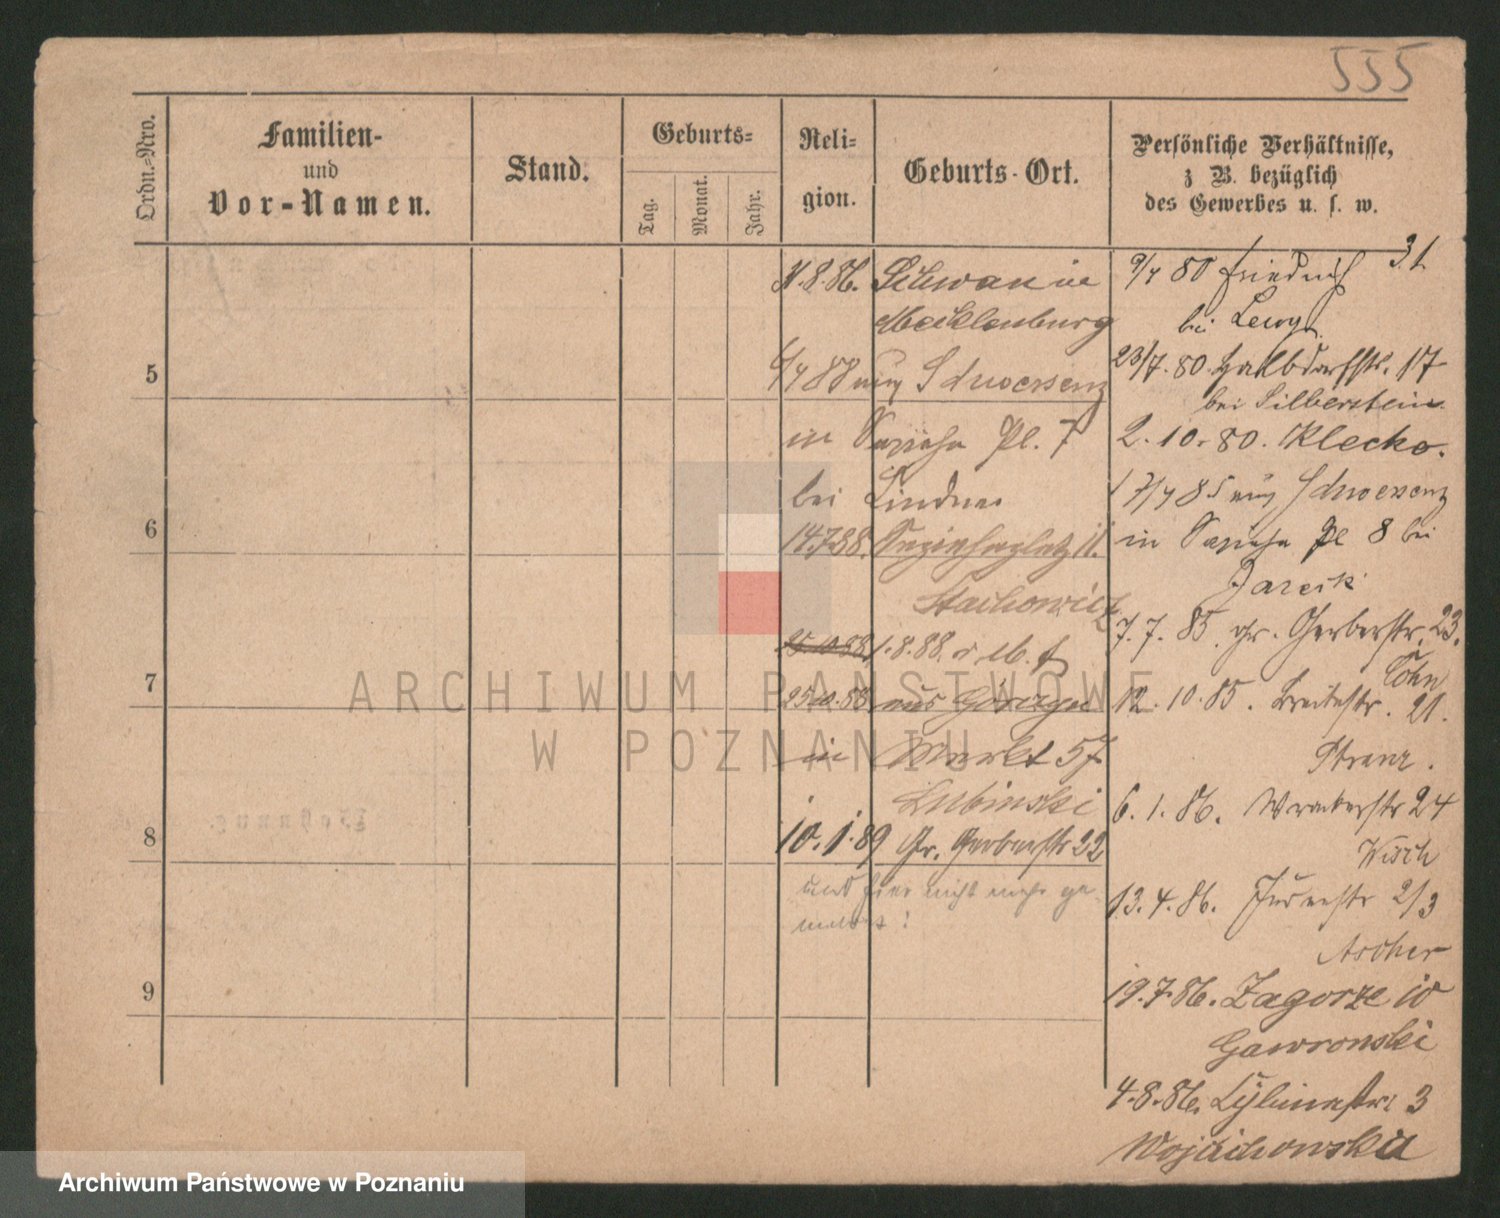 555
Ordn.-Nro.
Familien-
und
Vor-Namen.
Stand.
Geburts-
Tag.
Monat.
Jahr.
Reli-
gion.
Geburts-Ort.
Persönliche Verhältnisse,
z B. bezüglich
des Gewerbes u. s. w.
5
6
7
8
9
8.86.
Mecklenburg
88 aus Schwersenz
in Sapieha Pl. 7
bei Lindner
14.7.88. Sapiehaplatz 11.
Stachowicz
25.10.88. 1.8.88.
25.10.88. aus Górczyn
in Markt 57
Lubinski
10.1.89 Gr. Gerberstr 22
und hier nicht mehr ge-
meldet!
9/4 80 Friedrich 31
bei Lewy
23/7.80. Halbdorfstr. 17
bei Silberstein
2.10.80. Klecko.
17/4 85 aus Schwersenz
in Sapieha Pl 8 bei
Jarecki
7.7.85. gr. Gerberstr. 23.
Cohn
12.10.85. Breitestr. 21.
6.1.86. Wronkerstr 24
Wisch
13.4.86. Judenstr 2/3
Ascher
19.7.86. Zagorze 10
Gawronski
4.8.86. 3
Wojciechowska
ARCHIWUM PAŃSTWOWE
W POZNANIU
Archiwum Państwowe w Poznaniu